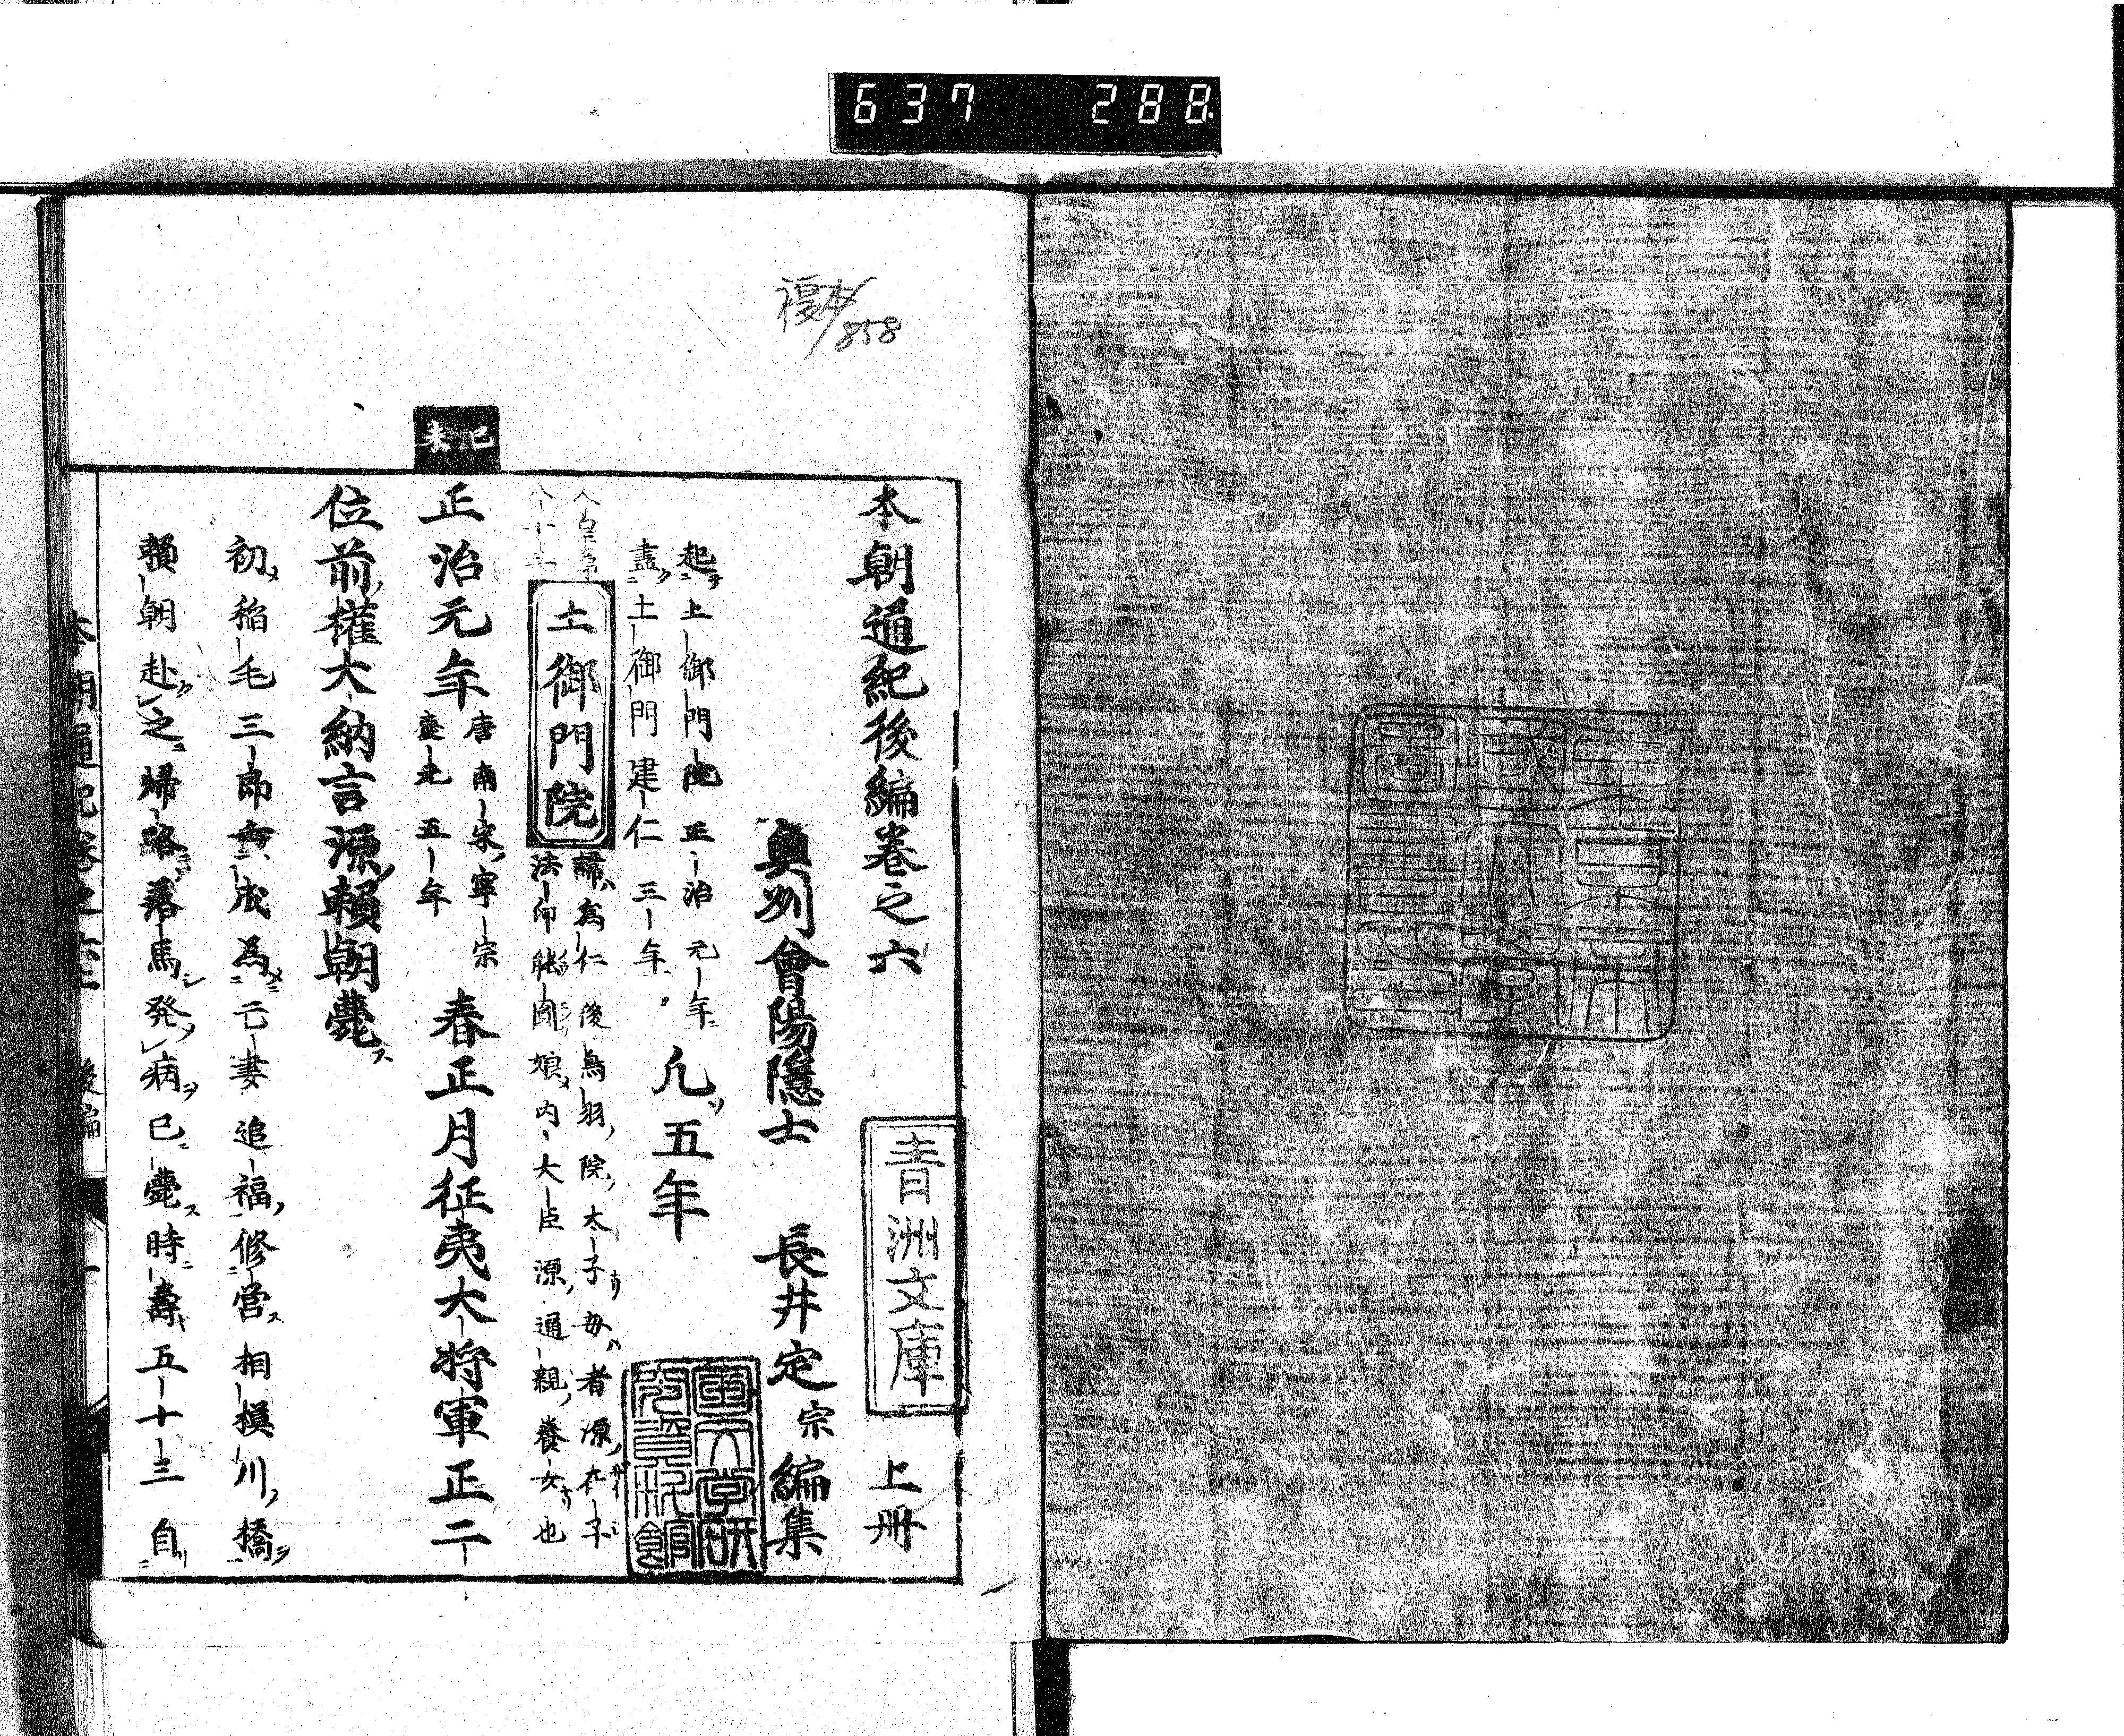 637 288
複本/858
本朝通紀後編巻之六 上冊
青洲文庫
奥州會陽隱士 長井定宗編集
起土御門院正治元年
盡土御門建仁三年 凡五年
土御門院
諱為仁後鳥羽院太子母者源在子
法印能圓娘内大臣源通親養女也
己未
正治元年 唐南宋寧宗
慶元五年
春正月征夷大将軍正二
位前權大納言源頼朝薨
初稲毛三郎重成為亡妻追福修営相摸川橋
頼朝赴之帰路落馬発病已薨時壽五十三自
國文学研
究資料館